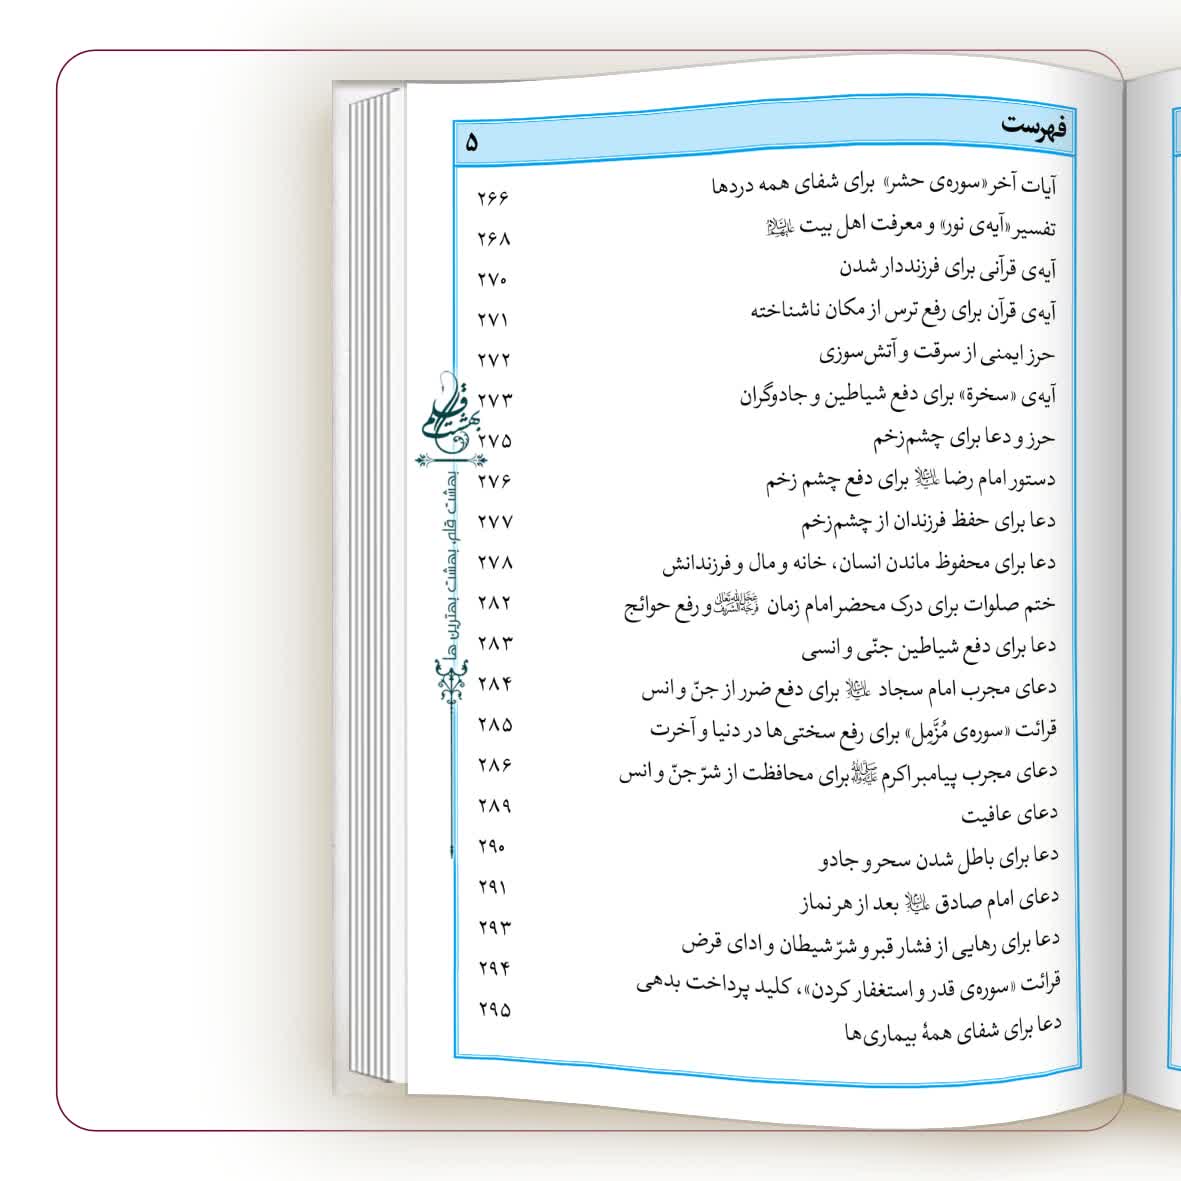 فهرست ۵
آیات آخر «سوره‌ی حشر» برای شفای همه دردها ۲۶۶
تفسیر «آیه‌ی نور» و معرفت اهل بیت علیهم السلام ۲۶۸
آیه‌ی قرآنی برای فرزنددار شدن ۲۷۰
آیه‌ی قرآن برای رفع ترس از مکان ناشناخته ۲۷۱
حرز ایمنی از سرقت و آتش‌سوزی ۲۷۲
آیه‌ی «سخرة» برای دفع شیاطین و جادوگران ۲۷۳
حرز و دعا برای چشم‌زخم ۲۷۵
دستور امام رضا علیه السلام برای دفع چشم زخم ۲۷۶
دعا برای حفظ فرزندان از چشم‌زخم ۲۷۷
دعا برای محفوظ ماندن انسان، خانه و مال و فرزندانش ۲۷۸
ختم صلوات برای درک محضر امام زمان عجل الله تعالی فرجه الشریف و رفع حوائج ۲۸۲
دعا برای دفع شیاطین جنّی و انسی ۲۸۳
دعای مجرب امام سجاد علیه السلام برای دفع ضرر از جنّ و انس ۲۸۴
قرائت «سوره‌ی مُزَّمِل» برای رفع سختی‌ها در دنیا و آخرت ۲۸۵
دعای مجرب پیامبر اکرم صلی الله علیه وآله برای محافظت از شرّ جنّ و انس ۲۸۶
دعای عافیت ۲۸۹
دعا برای باطل شدن سحر و جادو ۲۹۰
دعای امام صادق علیه السلام بعد از هر نماز ۲۹۱
دعا برای رهایی از فشار قبر و شرّ شیطان و ادای قرض ۲۹۳
قرائت «سوره‌ی قدر و استغفار کردن»، کلید پرداخت بدهی ۲۹۴
دعا برای شفای همهٔ بیماری‌ها ۲۹۵
بهشت قلم
بهشت قلم، بهشت بهترین ها